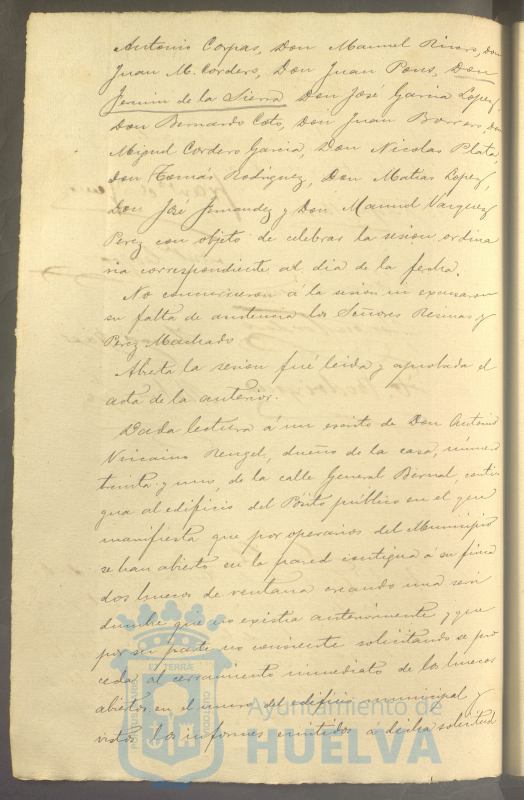 Antonio Corpas, Don Manuel Rivero, Don
Juan M. Cordero, Don Juan Pons, Don
de la Sierra Don José Garcia Lopez,
Don Bernardo Coto, Don Juan Borrero, Don
Miguel Cordero Garcia, Don Nicolas Plata,
Don Tomás Rodriguez, Don Matias Lopez,
Don José Fernandez y Don Manuel Vazquez
Perez con objeto de celebrar la sesion ordina
ria correspondiente al dia de la fecha.
No concurrieron á la sesion ni excusaron
su falta de asistencia los Señores Resinas y
Perez Machado
Abierta la sesion fué leida y aprobada el
acta de la anterior.
Dada lectura á un escrito de Don Antonio
Vizcaino Rengel, dueño de la casa, número
treinta y uno, de la calle General Bernal, conti
gua al edificio del Pósito público en el que
manifiesta que por operarios del Municipio
se han abierto en la pared contigua á su finca
dos huecos de ventana creando una servi
dumbre que no existia anteriormente y que
por su parte no consiente solicitando se pro
ceda al cerramiento inmediato de los huecos
abiertos en el muro del edificio municipal y
vistos los informes emitidos á dicha solicitud
Ayuntamiento de
HUELVA